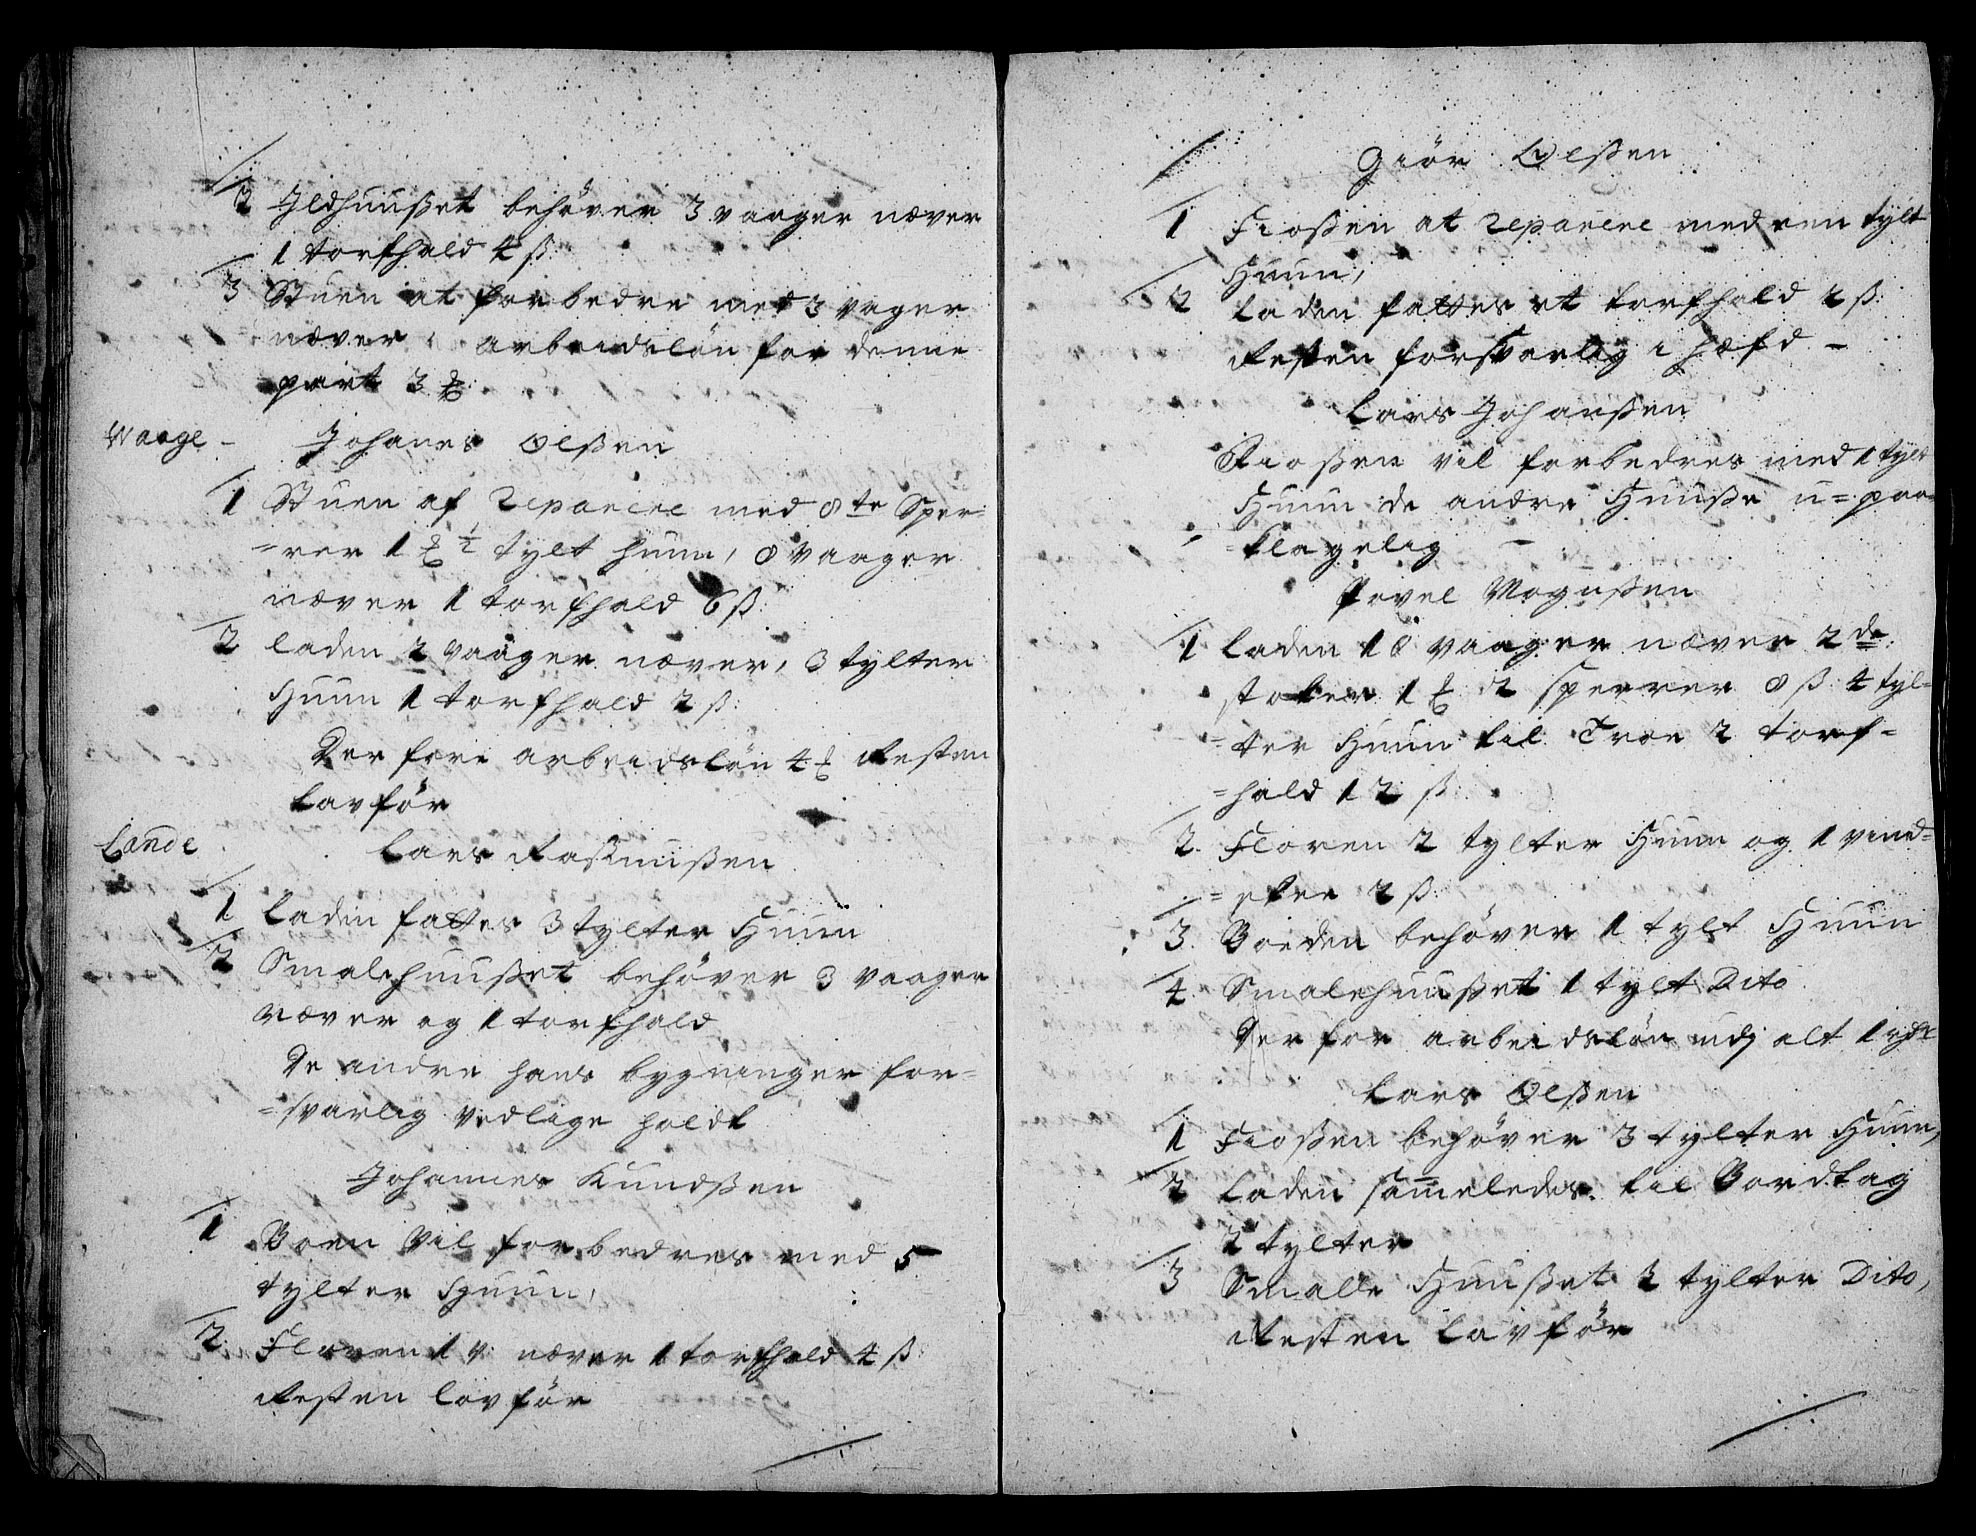 2 Jldhuusset behøver 3 vaager næver
1 torfhald 4 ß:
3 Stuen at forbedre med 3 vager
næver, arbeidsløn for denne
part 3
Waage - Johanes Olßen
1 Stuen at Reparere med 8te Sper=
=rer 1 ½ tylt huun, 8 vaager
næver 1 torfhald 6 ß:
2 laden 2 vaager næver, 3 tylter
Huun 1 torfhald 2 ß:
Derfore arbeidsløn 4 Resten
lavfør
Lande Lars Rasmußen
1 laden fattes 3 tylter Huun
2 Smalehuusset behøver 3 vaager
næver og 1 torfhald
De andre hans bygninger for=
=svarlig vedlige holdt
Johannes Kundßen
1 Boen vil forbedres med 5
tylter Huun,
2 Floren 1 v: næver 1 torfhald 4 ß:
Resten lovfør
Giør Olßen
1 Fioßen at Reparere med een tylt
Huun,
2 laden fattes et torfhald 2 ß:
Resten forsvarlig i hæfd -
Lars Johanßen
Fioßen vil forbedres med 1 tylt
Huun de andre Huuße u=paa=
=klagelig -
Povel Mogenßen
1 laden 18 vaager næver 2de
stoker 1 2 sperrer 8 ß: 4 tyl=
=ter Huun til Troe 2 torf=
=hald 12 ß:
2. Floren 2 tylter Huun og 1 vind=
=skee 2 ß:
3. Boeden behøver 1 tylt Huun
4. Smalehuusset 1 tylt Dito
Derfor arbeidsløn udj alt 1 rdr
Lars Olßen
1 Fioßen behøver 3 tylter Huun,
2 laden sameledes til Bordtag
2 tylter
3 Smalle Huusset 2 tylter Dito,
Resten lavfør